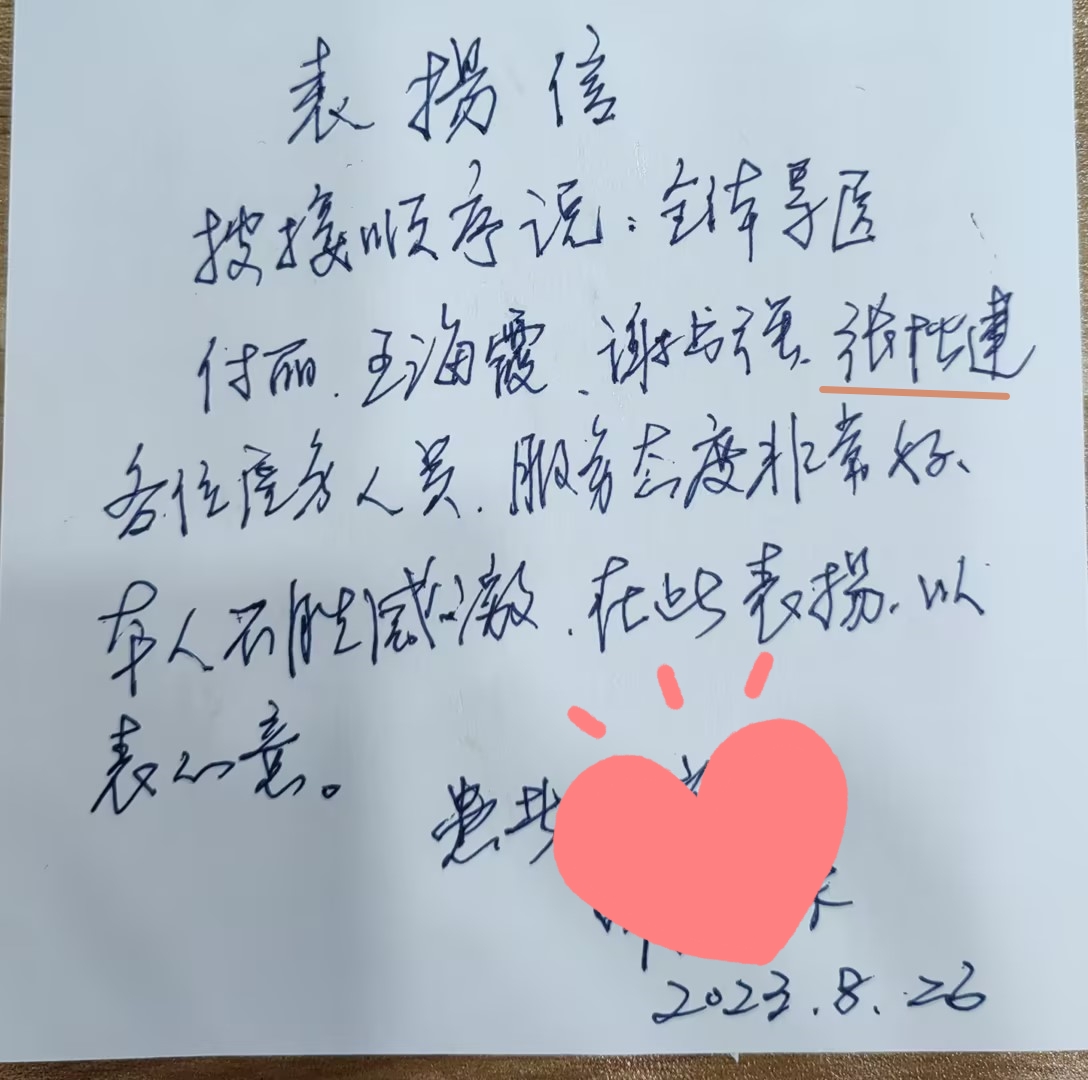 表揚信
按接顺序说:全体导医
付丽、王海霞、谢书强、张桂莲
各位医务人员、服务态度非常好、
本人不胜感激、在此表揚、以
表心意。
患
2023.8.26